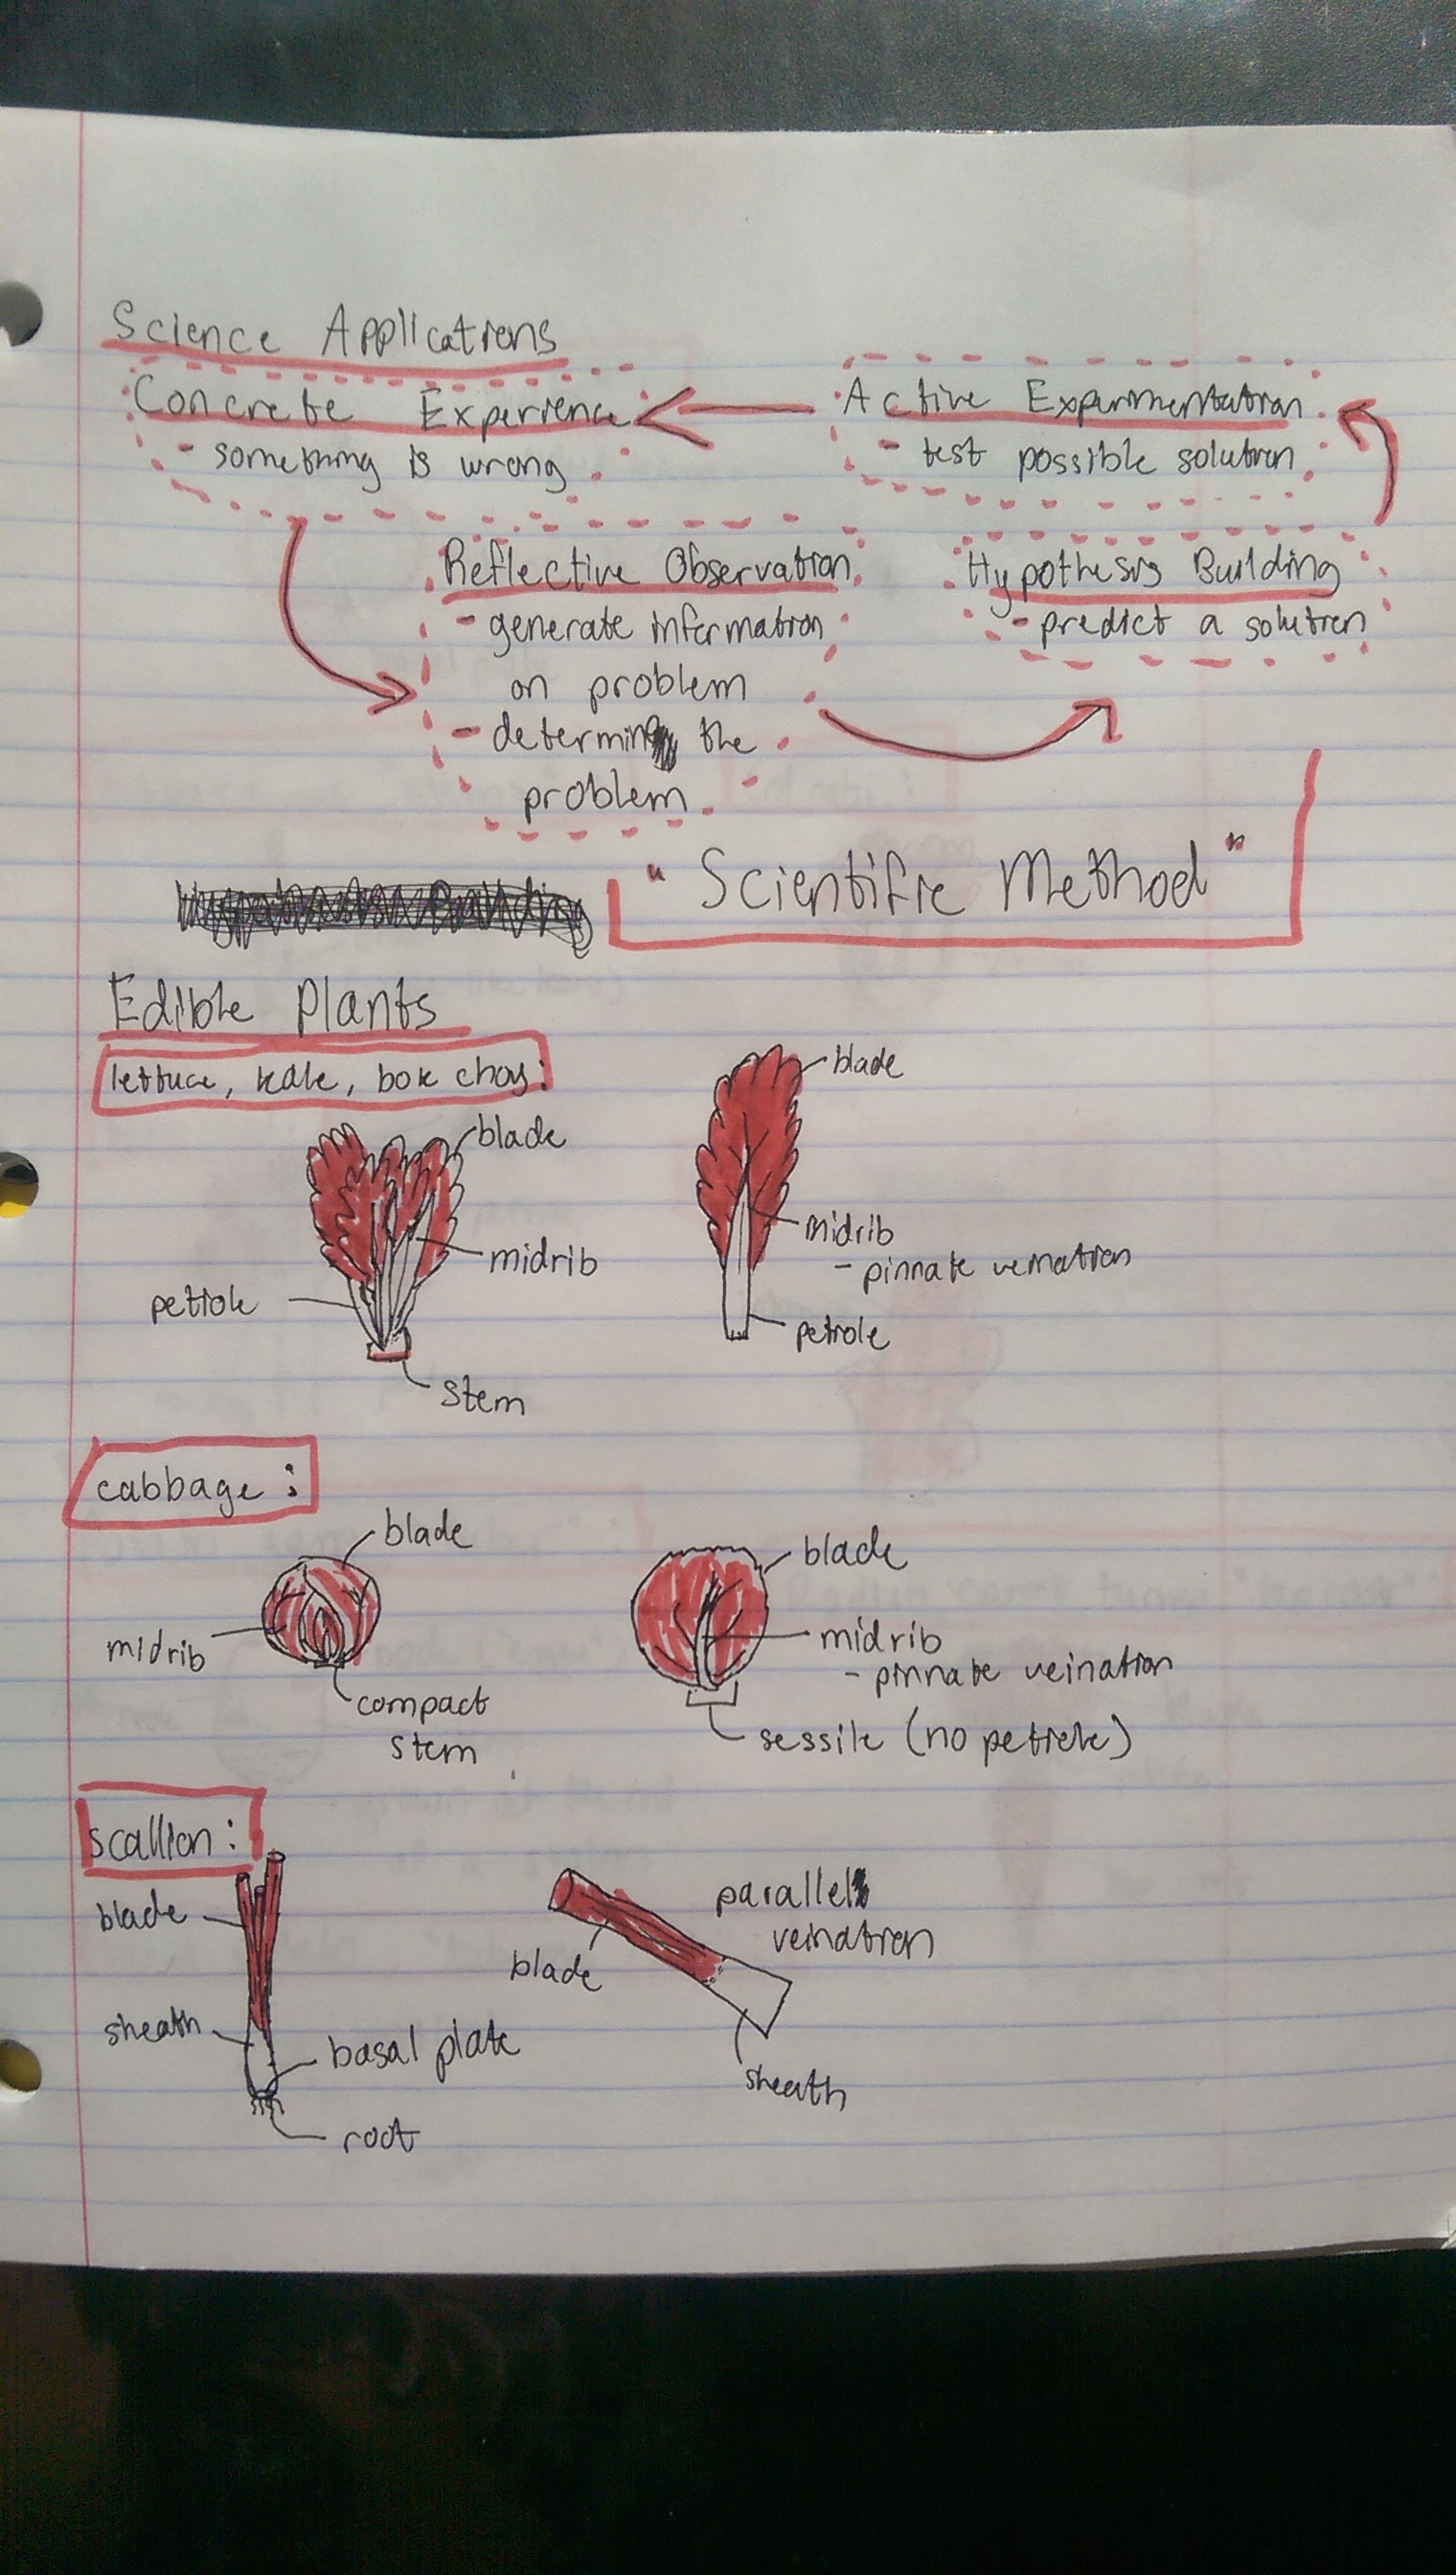 Science Applications
Concrete Experience
- something is wrong
Active Experimentation
- test possible solution
Reflective Observation
- generate information
on problem
- determine the
problem
Hypothesis Building
- predict a solution
"Scientific Method"
Edible Plants
lettuce, kale, bok choy:
blade
midrib
petiole
stem
blade
midrib
- pinnate venation
petiole
cabbage:
blade
midrib
compact
stem
blade
midrib
- pinnate veination
sessile (no petiole)
scallion:
blade
sheath
basal plate
root
parallel
veination
blade
sheath